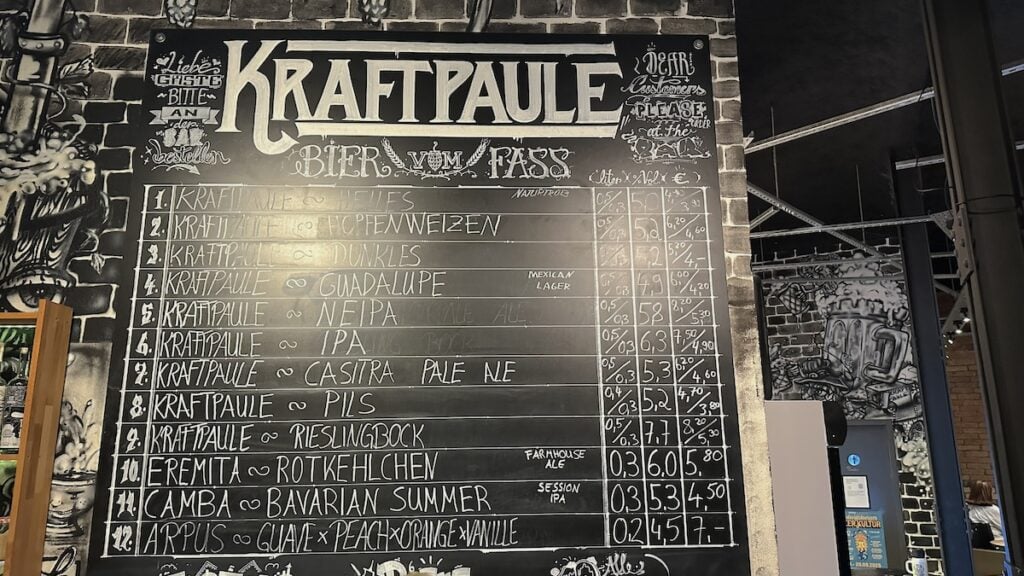 Liebe
Gäste
BITTE
AN
bestellen
KRAFTPAULE
DEAR
Customers
PLEASE
at the
BIER VOM FASS
Liter x %Vol x €
1. KRAFTPAULE ~ HELLES
2. KRAFTPAULE ~ HOPFENWEIZEN 5,2
3. KRAFTPAULE ~ DUNKLES 5,2 4,-
4. KRAFTPAULE ~ GUADALUPE MEXICAN LAGER 4,9 4,20
5. KRAFTPAULE ~ NEIPA 0,5/0,3 5,8 5,30
6. KRAFTPAULE ~ IPA 0,5/0,3 6,3 7,50/4,90
7. KRAFTPAULE ~ CASITRA PALE ALE 0,5/0,3 5,3 4,60
8. KRAFTPAULE ~ PILS 0,4/0,3 5,2 4,70/3,80
9. KRAFTPAULE ~ RIESLINGBOCK 0,5/0,3 7,7 5,30
10. EREMITA ~ ROTKEHLCHEN FARMHOUSE ALE 0,3 6,0 5,80
11. CAMBA ~ BAVARIAN SUMMER SESSION IPA 0,3 5,3 4,50
12. ARPUS ~ GUAVE x PEACH x ORANGE x VANILLE 0,2 4,5 7,-